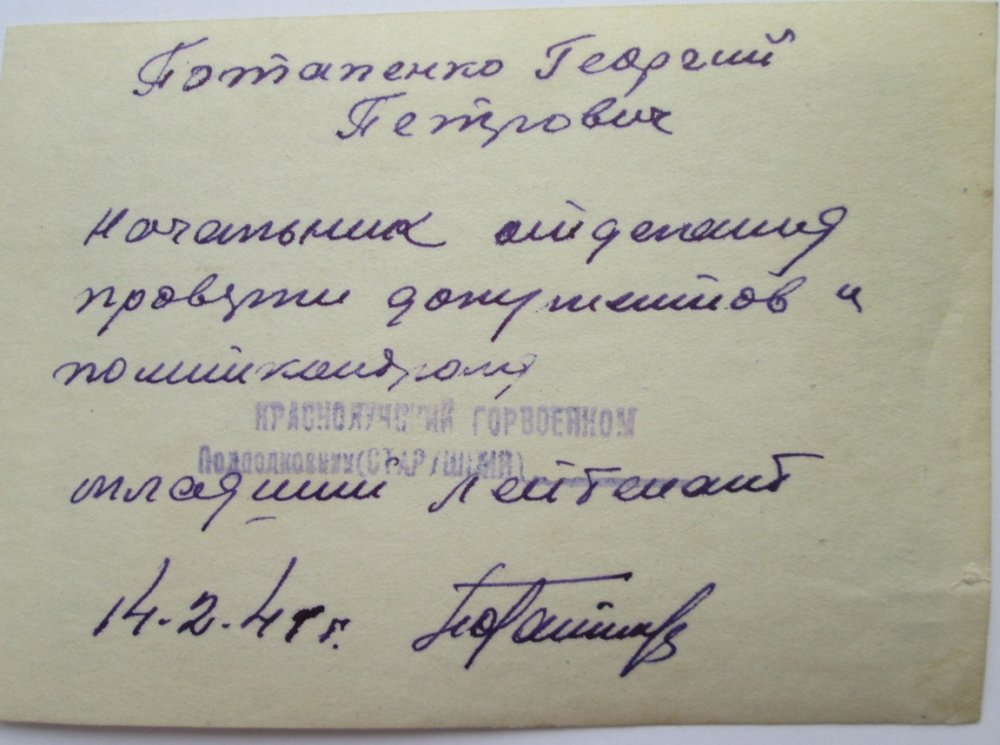 Потапенко Георгий
Петрович
Начальник отделения
проверки документов и
политконтроля
КРАСНОЛУЧСКИЙ ГОРВОЕНКОМ
Подполковник (СТАРЧЕНКО)
младший лейтенант
14.2.41 г.